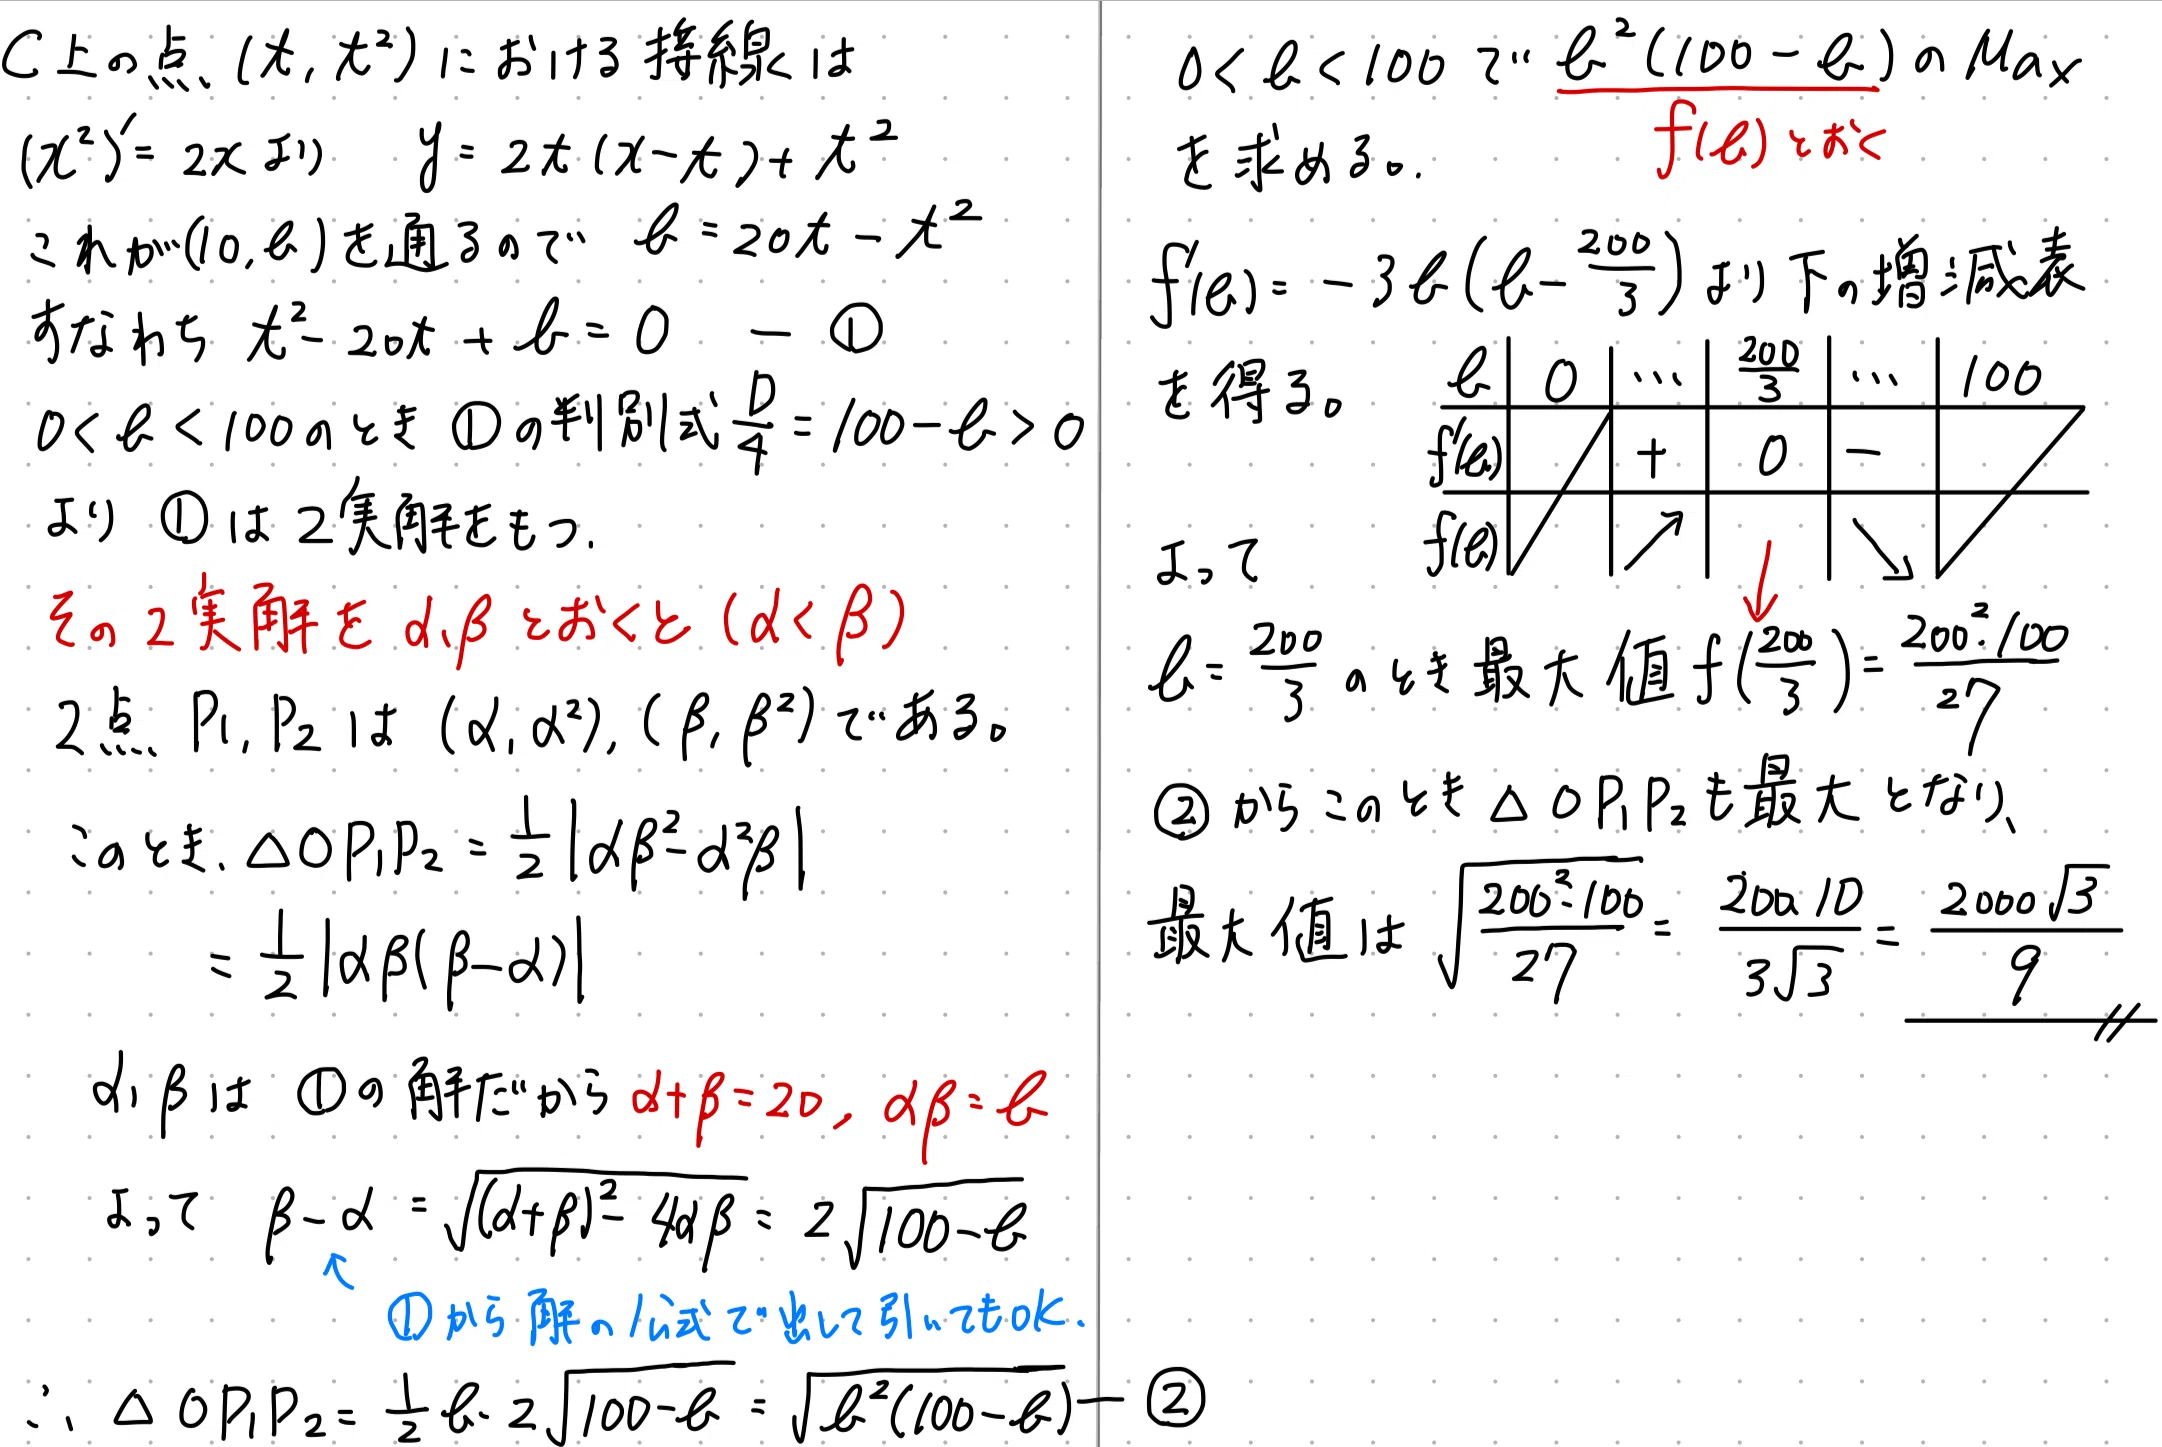 C上の点 (t, t²) における接線は
(x²)' = 2x より y = 2t(x-t) + t²
これが(10, b)を通るので b = 20t - t²
すなわち t² - 20t + b = 0 - ①
0 < b < 100 のとき ①の判別式 D/4 = 100 - b > 0
より ①は2実解をもつ.
その2実解を α, β とおくと (α < β)
2点 P₁, P₂ は (α, α²), (β, β²) である。
このとき. △OP₁P₂ = 1/2 |αβ² - α²β|
= 1/2 |αβ(β-α)|
α, β は ①の解だから α+β = 20, αβ = b
よって β-α = √((α+β)² - 4αβ) = 2√(100-b)
↑
①から解の公式で出して引いてもOK.
∴ △OP₁P₂ = 1/2 b・2√(100-b) = √(b²(100-b)) - ②
0 < b < 100 で b²(100-b) の Max
f(b)とおく
を求める。
f'(b) = -3b(b - 200/3) より下の増減表
を得る。
b 0 … 200/3 … 100
f'(b) + 0 -
f(b) ↗ ↘
よって
b = 200/3 のとき最大値 f(200/3) = 200²・100/27
②からこのとき △OP₁P₂も最大となり、
最大値は √(200²・100/27) = 200・10/3√3 = 2000√3/9